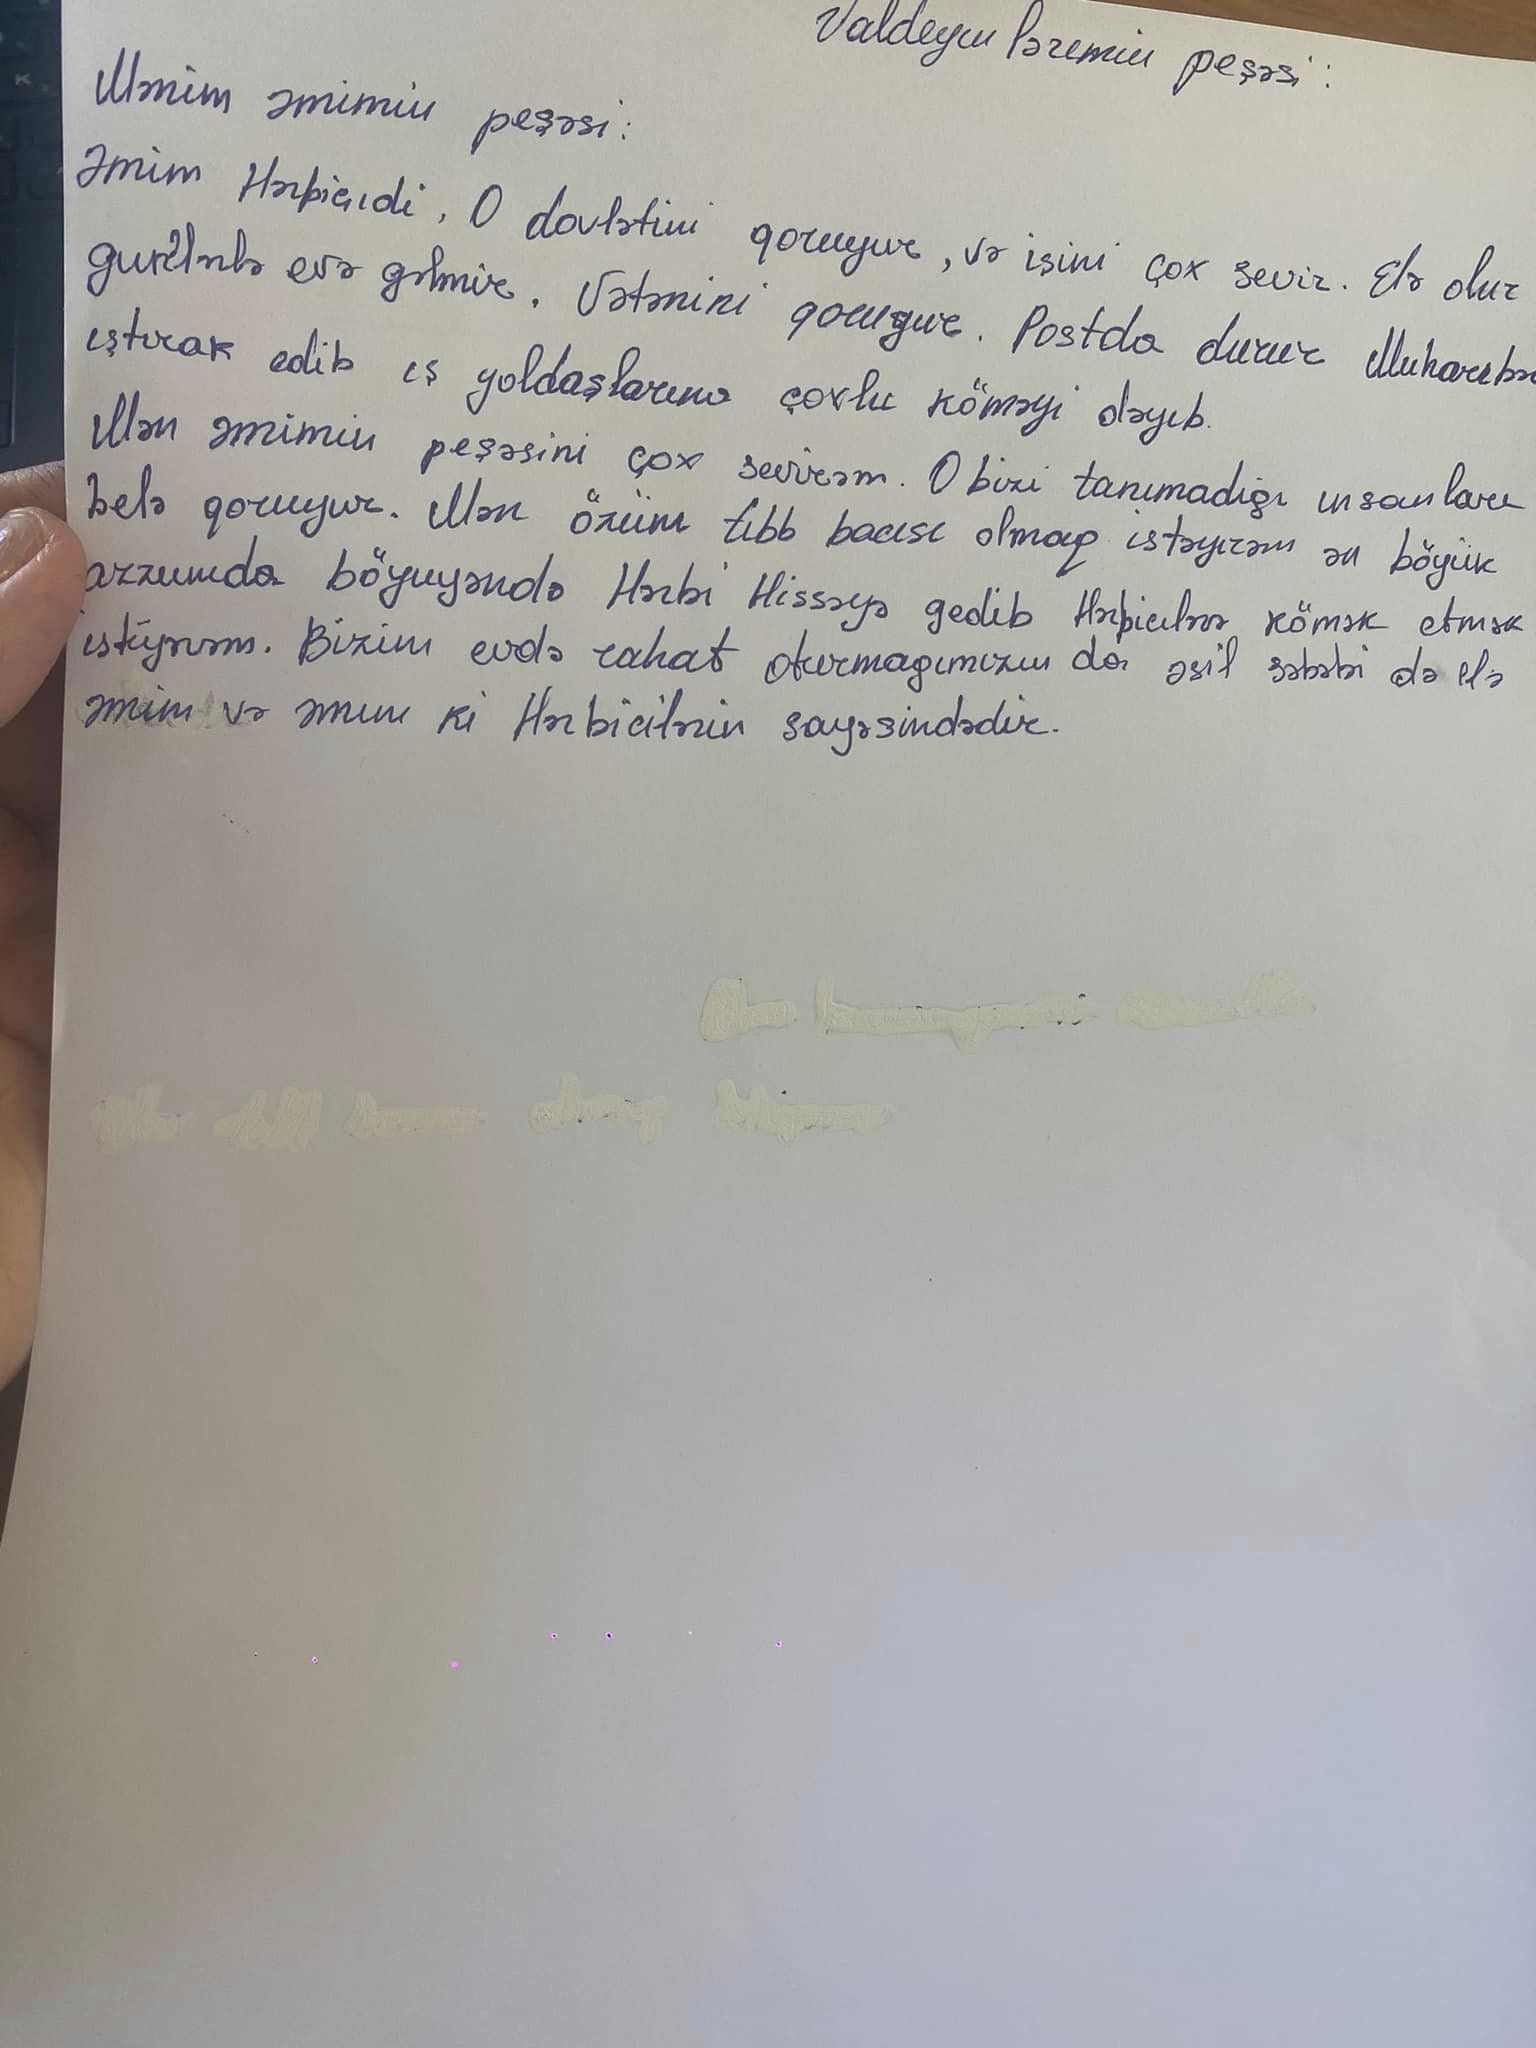 Valdeyn ləremin peşəsi:
Mənim əmimin peşəsi:
Əmim Hərbicidi. O dovlətini qoruyur, və işini çox sevir. Elə olur
gunlərlə evə gəlmir. Vətənini qoruyur. Postda durur Muharebə
ıştırak edib ış yoldaşlarına çoxlu köməyi dəyıb.
Mən əmimin peşəsini çox sevirəm. O bizi tanımadığı ınsanları
belə qoruyur. Mən özüm tıbb bacısı olmaq istəyırəm ən böyük
arzumda böyuyəndə Hərbi Hissəyə gedib Hərbicılərə kömək etmək
istəyırəm. Bizim evdə rahat oturmagımızın da əsil səbəbi də elə
əmim və əmim ki Hərbicilərin sayəsindədir.